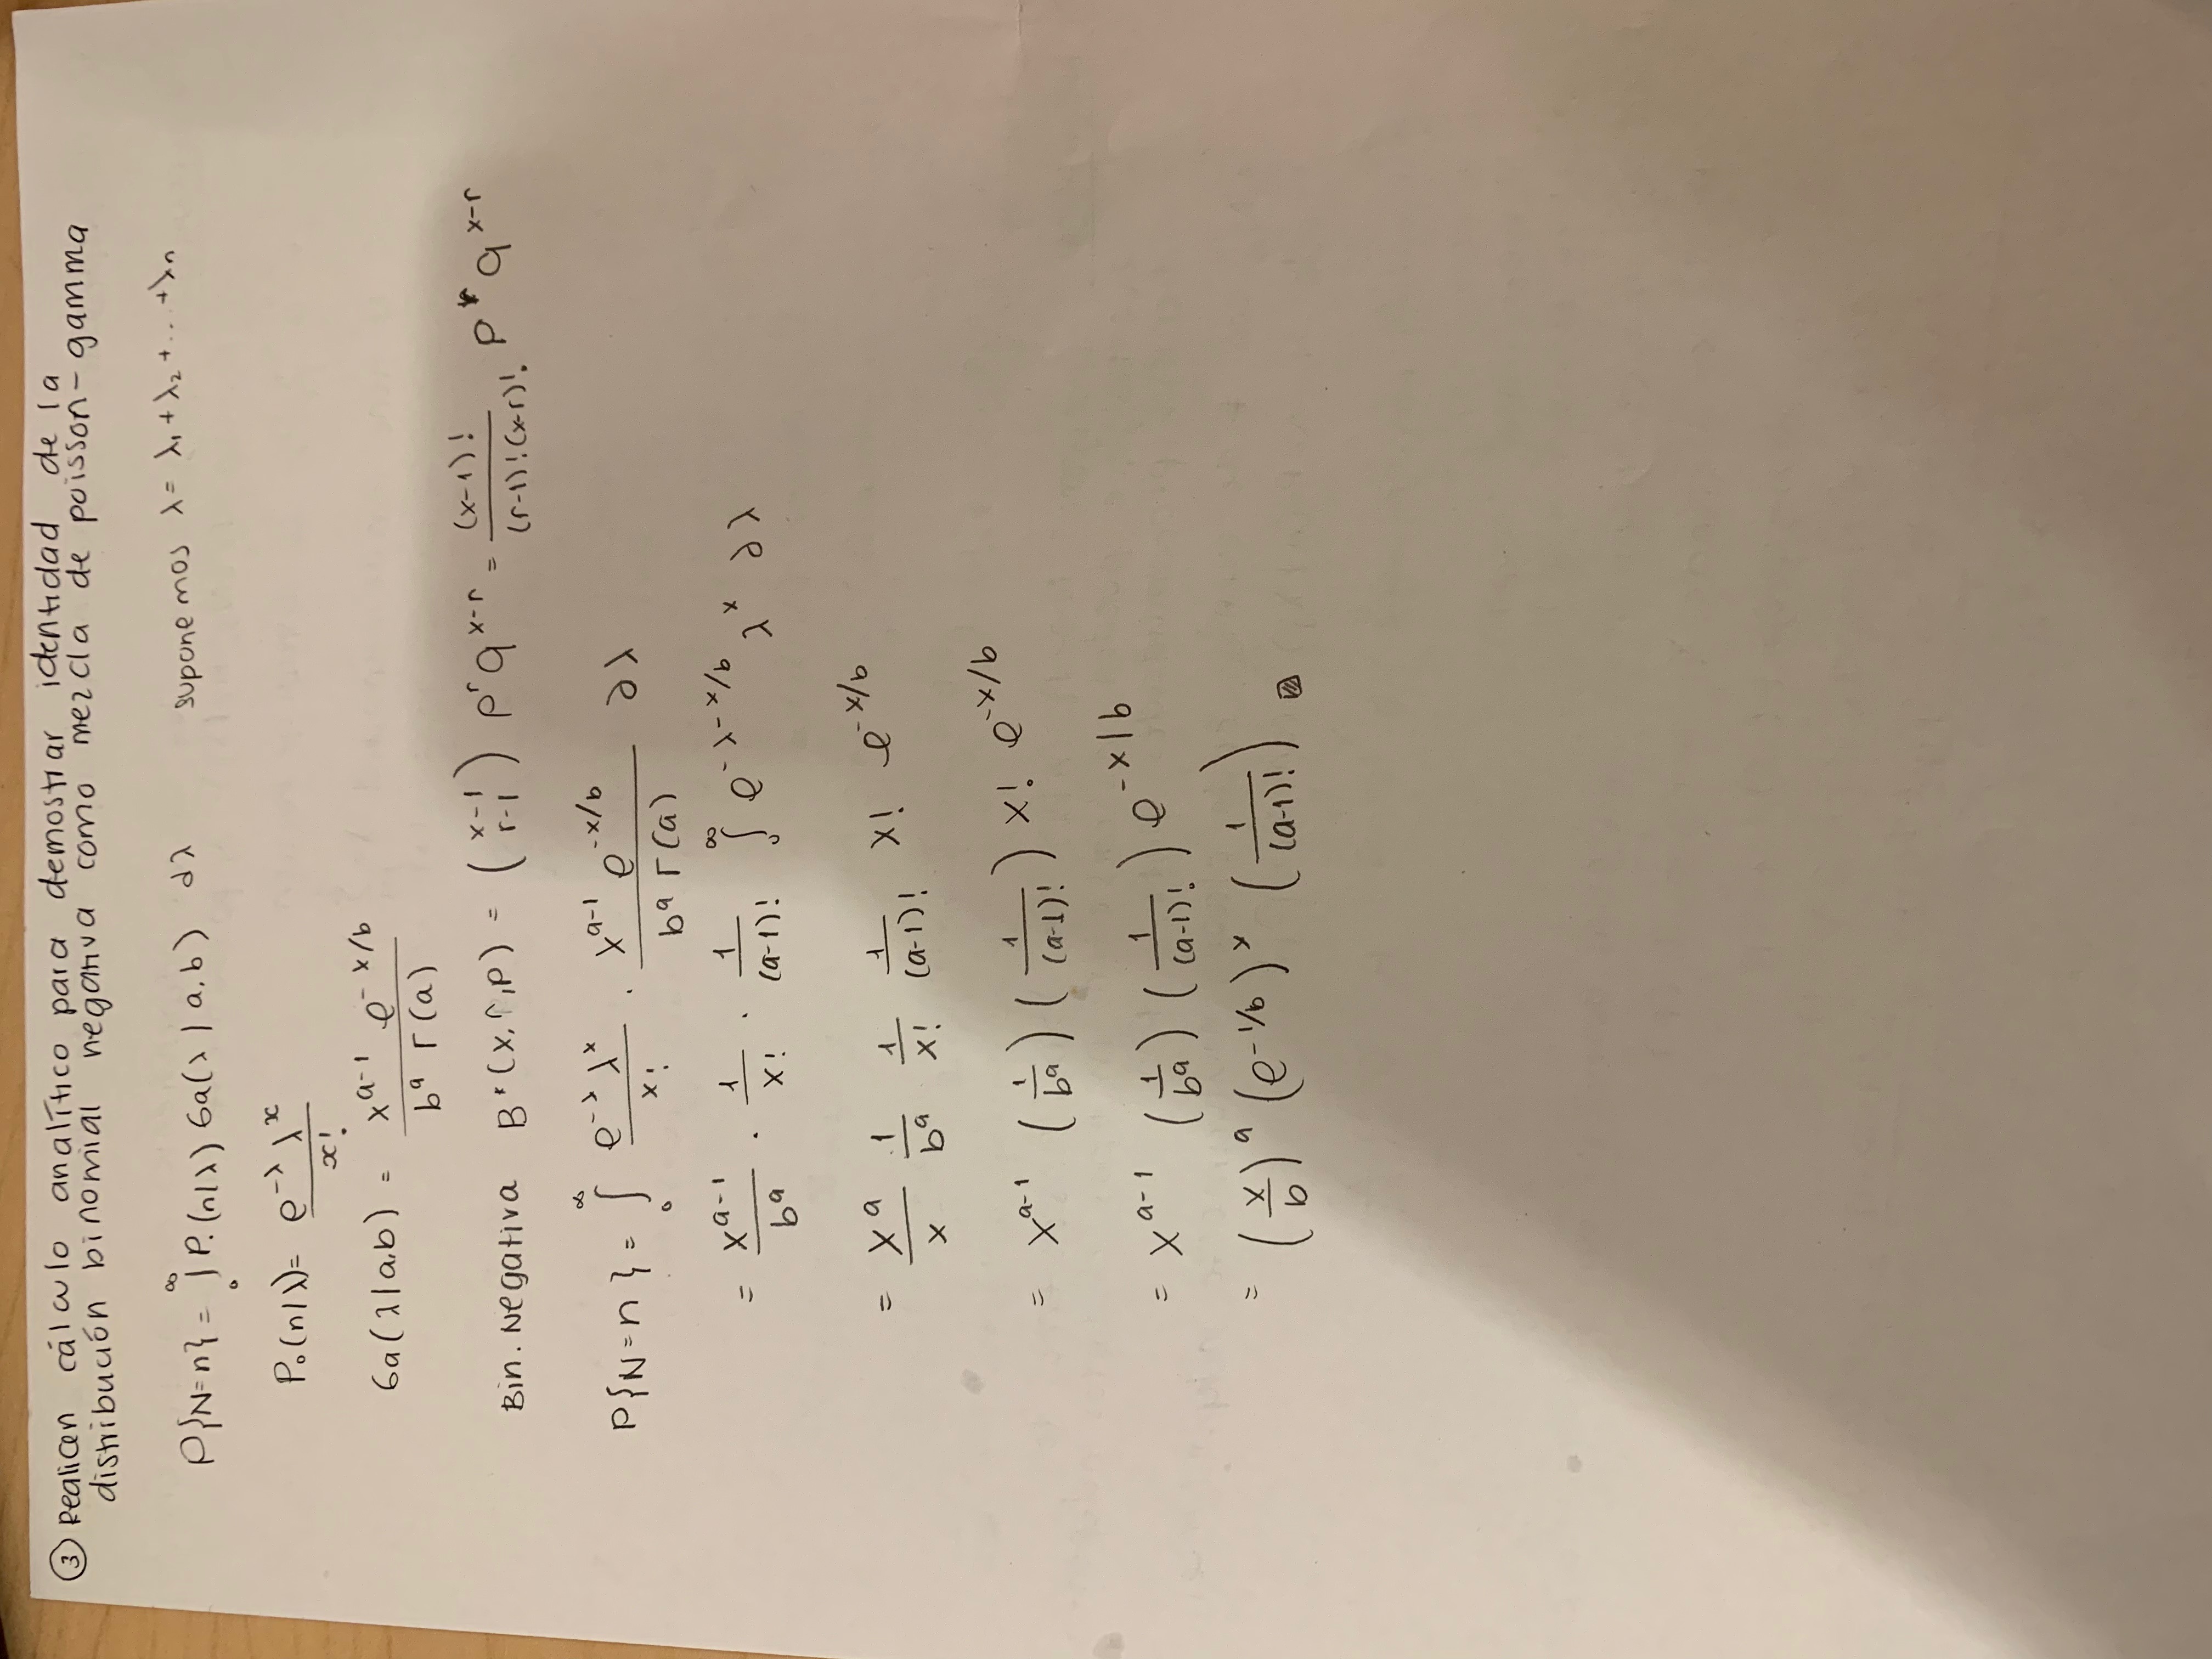 ③ Realicen cálculo analítico para demostrar identidad de la
distribución binomial negativa como mezcla de poisson-gamma
P{N=n} = ∫₀^∞ P.(n|λ) Ga(λ | a,b) dλ supone mos λ = λ₁ + λ₂ + ... + λn
Po(n|λ) = e^-λ λ^x / x!
Ga(λ|a,b) = x^a-1 e^-x/b / b^a Γ(a)
Bin. Negativa B*(x,r,p) = (x-1 r-1) p^r q^x-r = (x-1)! / (r-1)!(x-r)! p^r q^x-r
P{N=n} = ∫₀^∞ e^-λ λ^x / x! · x^a-1 e^-x/b / b^a Γ(a) ∂λ
= x^a-1 / b^a · 1/x! · 1/(a-1)! ∫₀^∞ e^-λ-x/b λ^x ∂λ
= x^a / x 1/b^a 1/x! 1/(a-1)! x! e^-x/b
= x^a-1 (1/b^a) (1/(a-1)!) x! e^-x/b
= x^a-1 (1/b^a) (1/(a-1)!) e^-x|b
= (x/b)^a (e^-1/b)^x (1/(a-1)!)